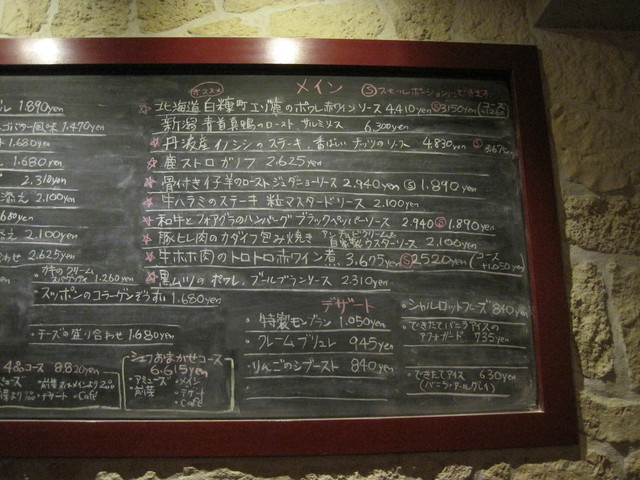 オススメ メイン Ⓢスモールポーションにできます
☆北海道白糠町エゾ鹿のポワレ 赤ワインソース 4.410yen Ⓢ3150yen
新潟 青首真鴨のロースト サルミソース 6.300yen
☆丹波産イノシシのステーキ 香ばしいナッツのソース 4.830yen Ⓢ3.675yen
☆鹿ストロガノフ 2.625yen
☆骨付き仔羊のロースト ジンダジョーソース 2.940yen Ⓢ1.890yen
☆牛ハラミのステーキ 粒マスタードソース 2.100yen
☆和牛とフォアグラのハンバーグ ブラックペッパーソース 2.940 Ⓢ1.890yen
☆豚ヒレ肉のカダイフ包み焼き 自家製ウスターソース 2.100yen
☆牛ホホ肉のトロトロ赤ワイン煮 3.675yen Ⓢ2520yen (コース+1.050yen)
☆黒ムツのポワレ ブールブランソース 2.310yen
ル 1.890yen
バター風味 1.470yen
1.680yen
1.680yen
2.310yen
添え 2.100yen
1.680yen
添え 2.100yen
わせ 2.625yen
・カキのクリーム 1.260yen
・スッポンのコラーゲンぞうすい 1.680yen
・チーズの盛り合わせ 1.680yen
4品コース 8.820yen
・デザート ・Café
シェフおまかせコース
6.615yen
・アミューズ ・メイン
・前菜 ・デザート
・Café
デザート
・特製モンブラン 1.050yen
・クレームブリュレ 945yen
・りんごのシブースト 840yen
・シャルロットフリーズ 840yen
・できたてバニラアイスの
アフォガード 735yen
・できたてアイス 630yen
(バニラ・アールグレイ)